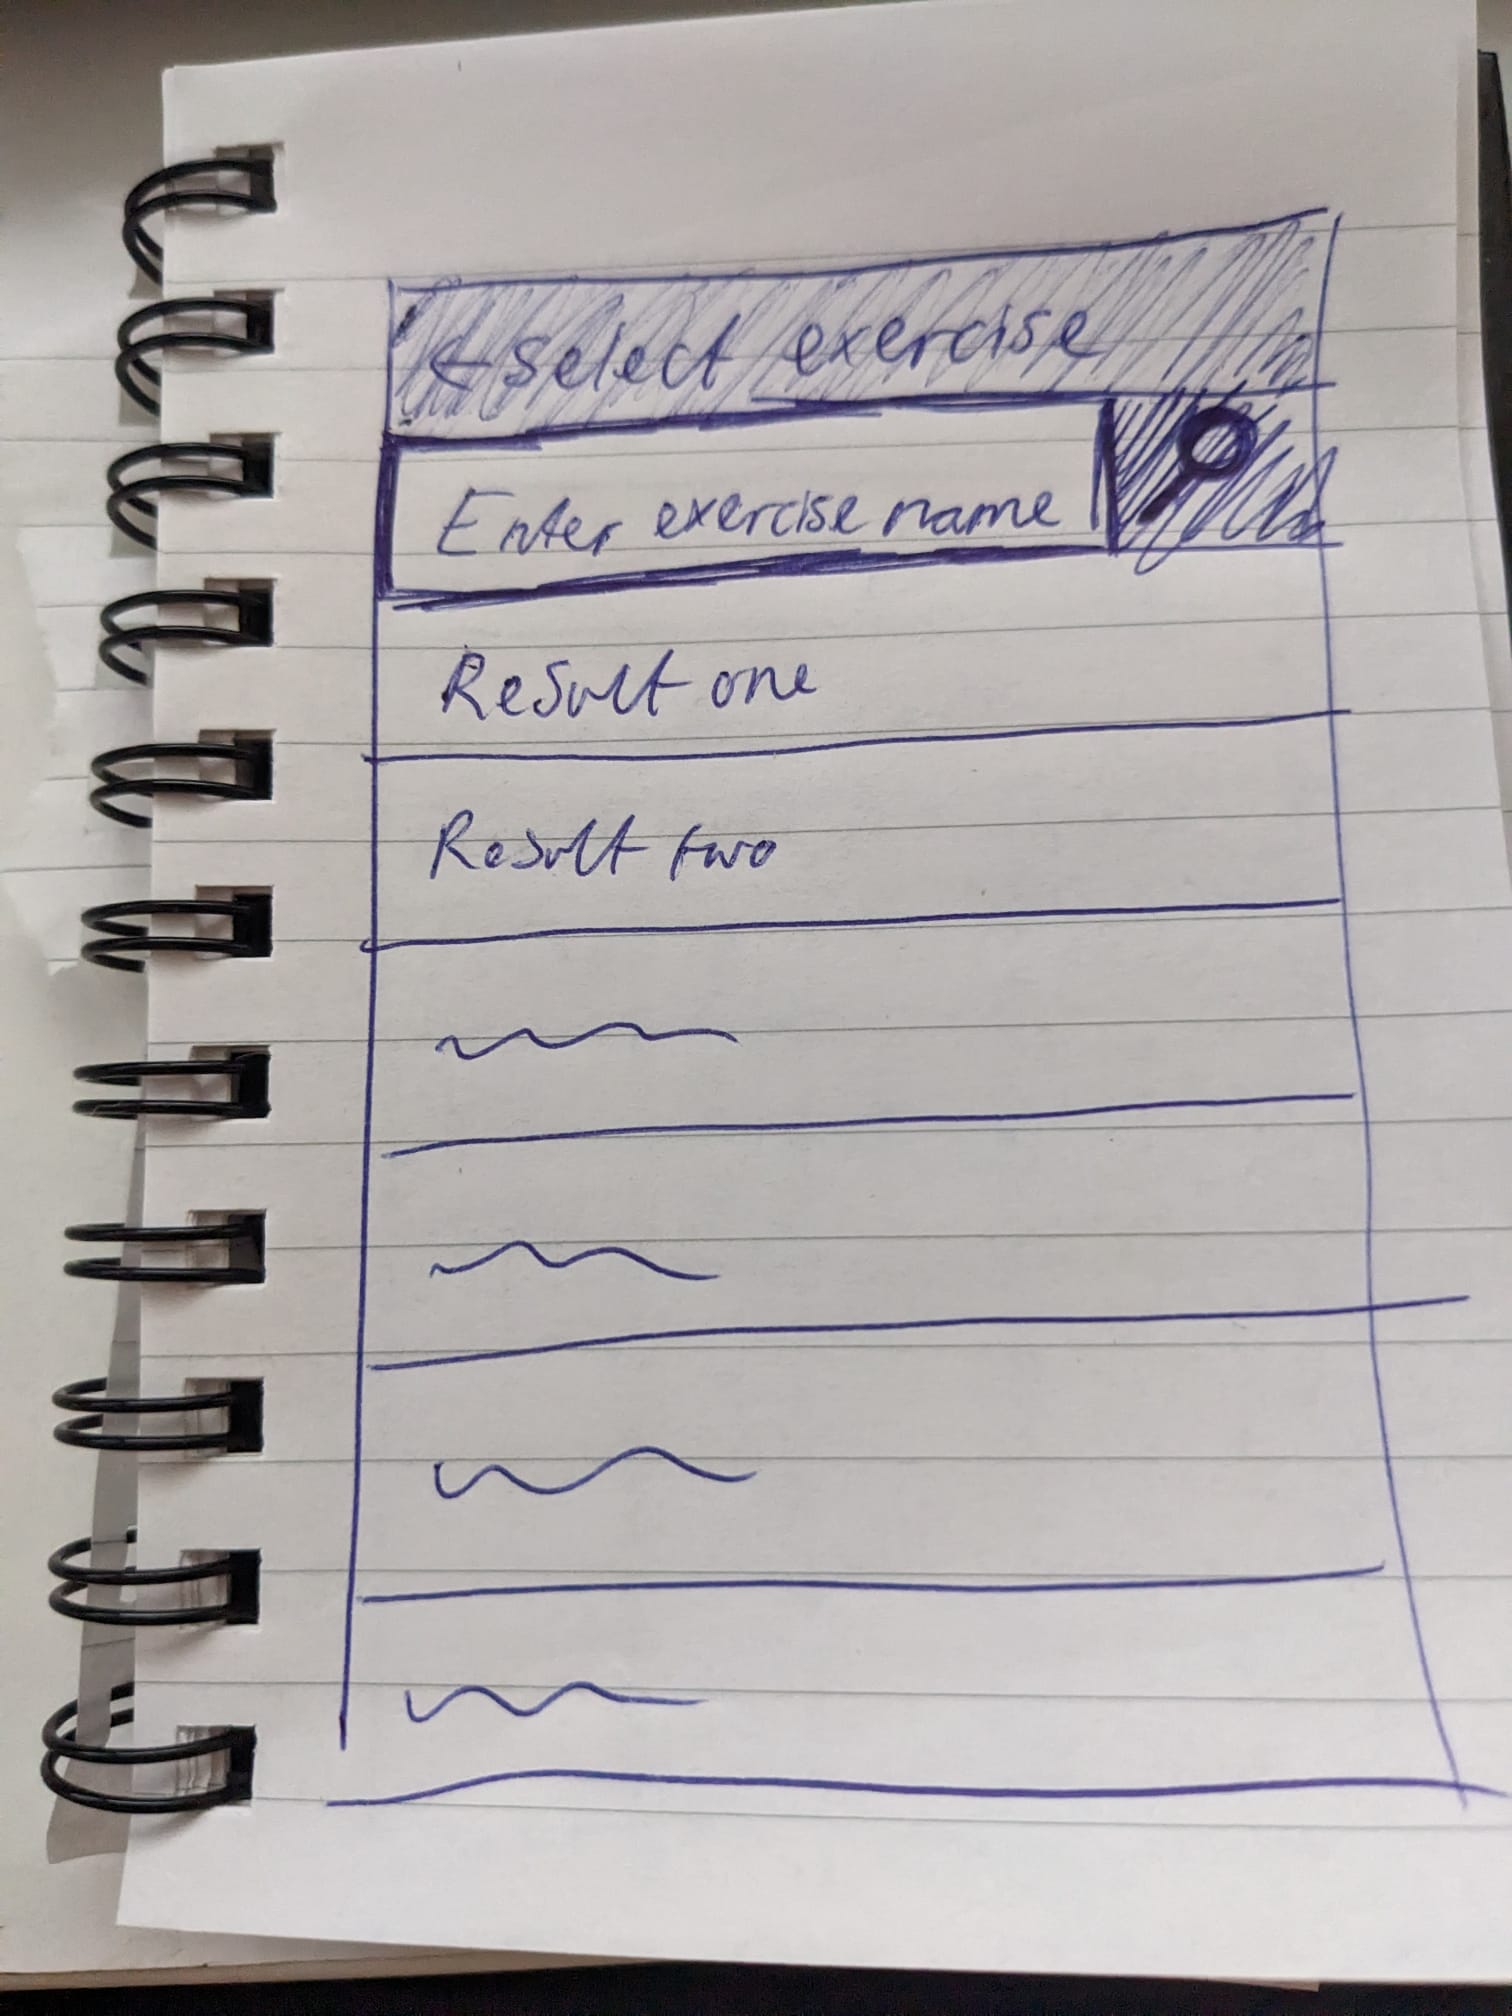 ← select exercise
Enter exercise name
Result one
Result two